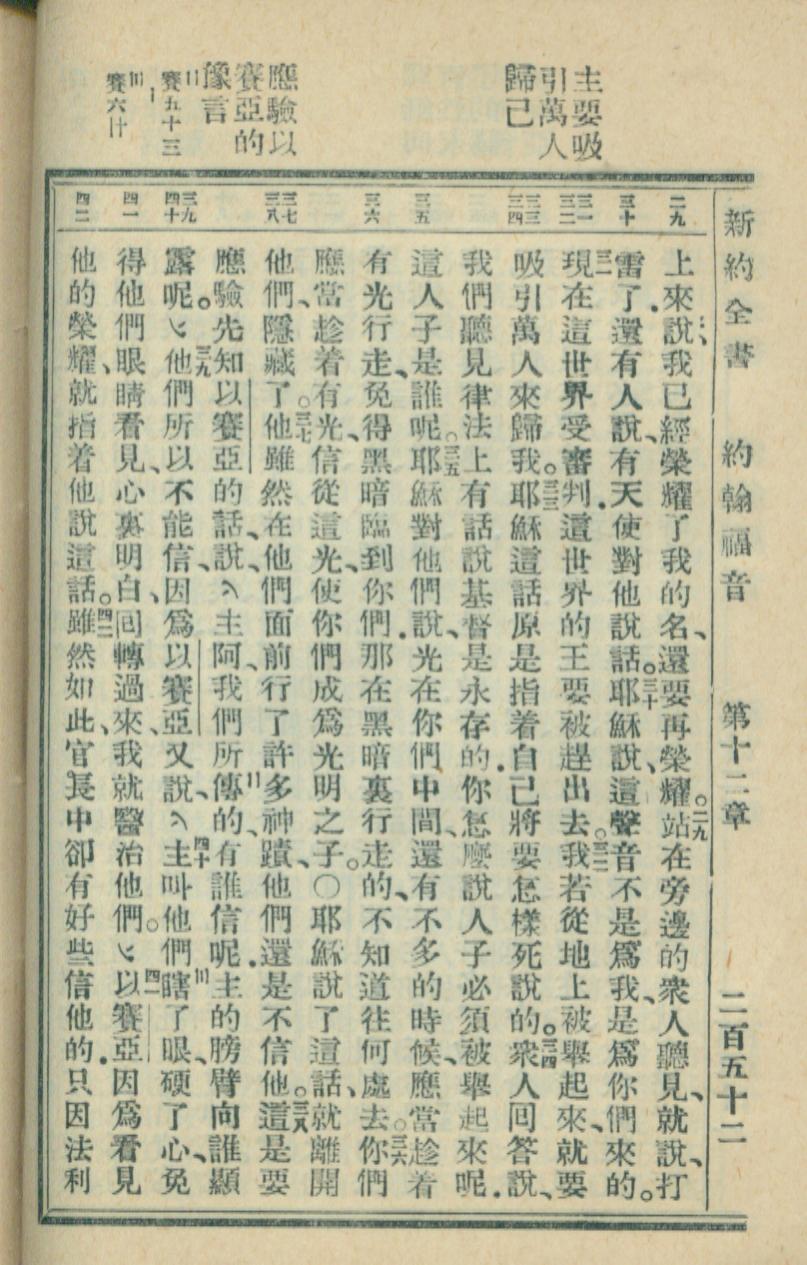 新約全書 約翰福音 第十二章 二百五十二
主要吸
引萬人
歸己
應驗以
賽亞的
豫言
〢賽五十三
〡
〣賽六〸
二九
三十
三一
三二
三三
三四
三五
三六
三七
三八
三九
四十
四一
四二
上來說、我已經榮耀了我的名、還要再榮耀。二九站在旁邊的衆人聽見、就說、打
雷了.還有人說、有天使對他說話。三十耶穌說、這聲音不是爲我、是爲你們來的。
三一現在這世界受審判.這世界的王要被趕出去。三二我若從地上被舉起來、就要
吸引萬人來歸我。三三耶穌這話原是指着自己將要怎樣死說的。三四衆人回答說、
我們聽見律法上有話說基督是永存的.你怎麼說人子必須被舉起來呢.
這人子是誰呢。三五耶穌對他們說、光在你們中間、還有不多的時候、應當趁着
有光行走、免得黑暗臨到你們.那在黑暗裏行走的、不知道往何處去。三六你們
應當趁着有光、信從這光、使你們成爲光明之子。〇耶穌說了這話、就離開
他們、隱藏了。三七他雖然在他們面前行了許多神蹟、他們還是不信他。三八這是要
應驗先知以賽亞的話、說、主阿、我們所傳的、〢有誰信呢.主的膀臂向誰顯
露呢。三九他們所以不能信、因爲以賽亞又說、四十主叫他們瞎了眼、〣硬了心、免
得他們眼睛看見、心裏明白、回轉過來、我就醫治他們。四一以賽亞因爲看見
他的榮耀、就指着他說這話。四二雖然如此、官長中卻有好些信他的.只因法利